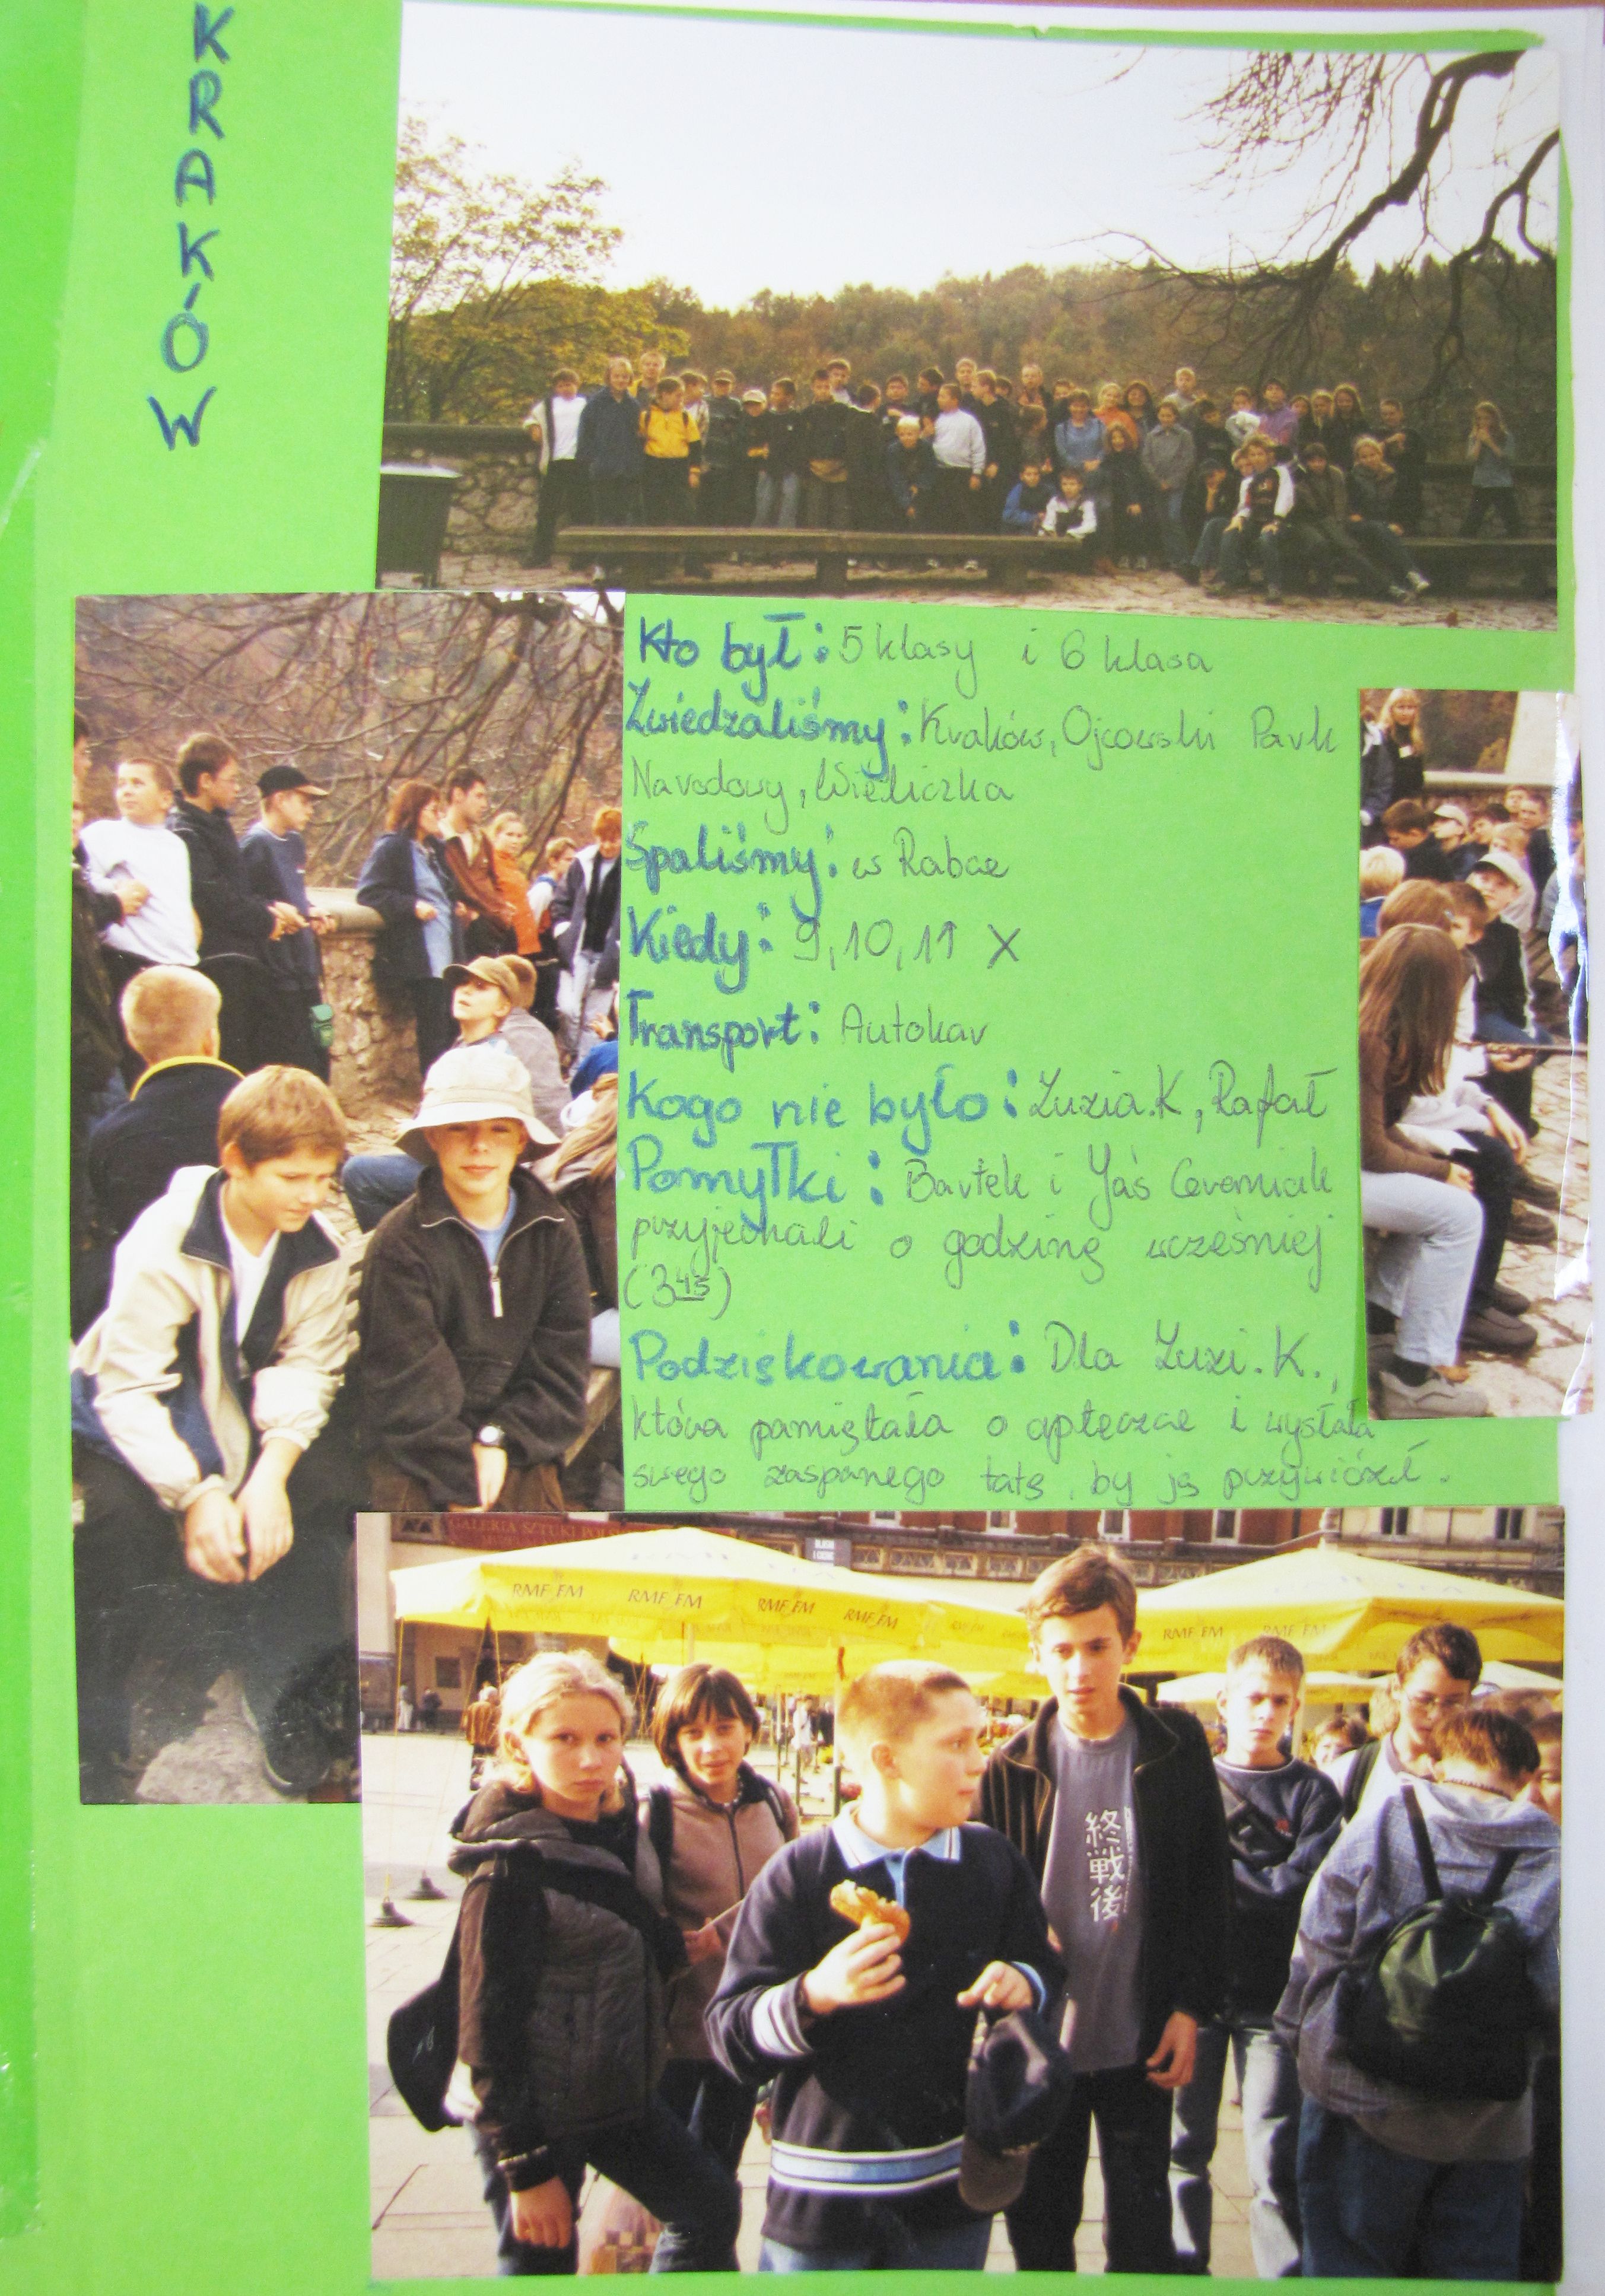 KRAKÓW
Kto był: 5 klasy i 6 klasa
Zwiedzaliśmy: Kraków, Ojcowski Park
Narodowy, Wieliczka
Spaliśmy: w Rabce
Kiedy: 9, 10, 11 X
Transport: Autokar
Kogo nie było: Zuzia.K, Rafał
Pomyłki: Bartek i Jaś Ceromiak
przyjechali o godzinę wcześniej
(3 45)
Podziękowania: Dla Zuzi.K.,
która pamiętała o apteczce i wysłała
swego zaspanego tatę, by ją przywiózł.
GALERIA SZTUKI POL
RMF FM RMF FM RMF FM RMF FM RMF FM RMF FM
終戦後